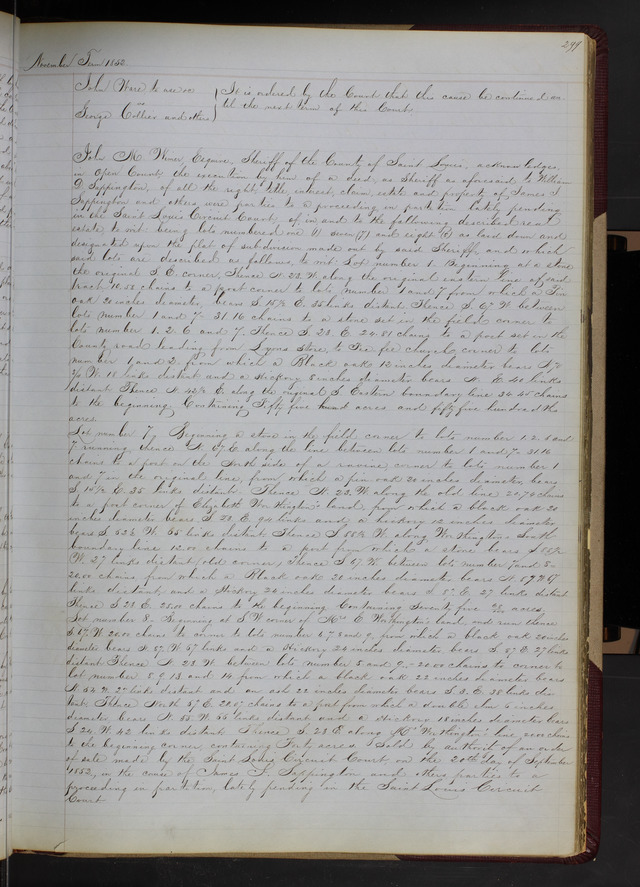 299
November Term 1852
John
George Collier and others
It is ordered by the Court that this cause be continued un
til the next term of this Court
John M Wimer, Esquire, Sheriff of the County of Saint Louis, acknowledges
in Open Court, the execution by him of a deed, as Sheriff as aforesaid to William
D Sappington, of all the right, title, interest, claim, estate and property of James
Sappington and others, were parties to a proceeding in partition lately pending
in the Saint Louis Circuit Court, of in and to the following described real
estate to wit: being lots numbered one (1) seven (7) and eight (8) as laid down and
designated upon the plat of subdivision made out by said Sheriff, and which
said lots are described as follows, to wit: Lot number 1. Beginning at a stone
the original S. E. corner, thence N. 23. W along the original eastern line of said
tract 10.50 chains to a post corner to lots number 1 and 7 from which a Pin
oak 20 inches diameter, bears S. 15½ E. 35 links distant Thence S. 67 W. between
lots number 1 and 7- 31.16 chains to a stone set in the field corner to
lots number 1. 2. 6 and 7. Thence S. 23. E. 24.81 chains to a post set in the
County road leading from Lyons store to Fee fee church, corner to lots
number 1 and 2, from which a Black oak 12 inches diameter bears
W. 18 links distant and a Hickory 8 inches diameter bears N. E. 40 links
distant Thence N. 42½ E. along the original S. Eastern boundary line 34.45 chains
to the beginning Containing Fifty five acres and fifty five hundredths
acres.
Lot number 7, Beginning a stone in the field corner to lots number 1. 2. 6 and
7 running thence N. 67. E. along the line between lots number 1 and 7- 31.16
chains to a post on the North side of a ravine, corner to lots number 1
and 7 in the original line, from which a pin oak 20 inches diameter, bears
S. 15½ E. 35 links distant. Thence N. 23. W along the old line 20.70 chains
to a post corner of Elizabeth Worthington's land, from which a black oak 20
inches diameter bears S. 20. E. 94 links and a hickory 12 inches diameter
bears S. 53½ W. 55 links distant Thence S. 55½ W along Worthington's South
boundary line 12.00 chains to a post from which a stone bears S. 55½
W. 27 links distant (old corner) Thence S. 67. W. between lots number 7 and 8-
20.00 chains, from which a Black oak 20 inches diameter bears N. 57 W 57
links distant and a Hickory 24 inches diameter bears S. 87. E. 27 links distant
Thence S. 23 E. 25.00 chains to the beginning Containing Seventy five acres,
Lot number 8- Beginning at S. W corner of Mrs E Worthington's land, and run thence
S. 67. W. 20.00 chains to corner to lots number 6, 7, 8 and 9. from which a black oak 20 inches
diameter bears N. 57. W 57 links and a Hickory 24 inches diameter bears S. 87. E. 27 links
distant Thence N. 23 W. between lots number 8 and 9, - 20.00 chains to corner to
lot number 8. 9. 13 and 14 from which a black oak 22 inches diameter bears
N. 54. W. 27 links distant and an ash 22 inches diameter bears S. 3. E. 38 links dis
tant. Thence North 67. E. 20.00 chains to a post from which a double elm 6 inches
diameter bears N. 55. W. 55 links distant and a Hickory 18 inches diameter bears
S. 24. W. 42 links distant Thence S. 23 E. along Mrs Worthington's line, 20.00 chains
to the beginning corner, containing Forty acres. Sold by authority of an order
of sale made by the Saint Louis Circuit Court, on the 20th day of September
1852, in the cause of James Sappington and others parties to a
proceeding in partition, lately pending in the Saint Louis Circuit
Court